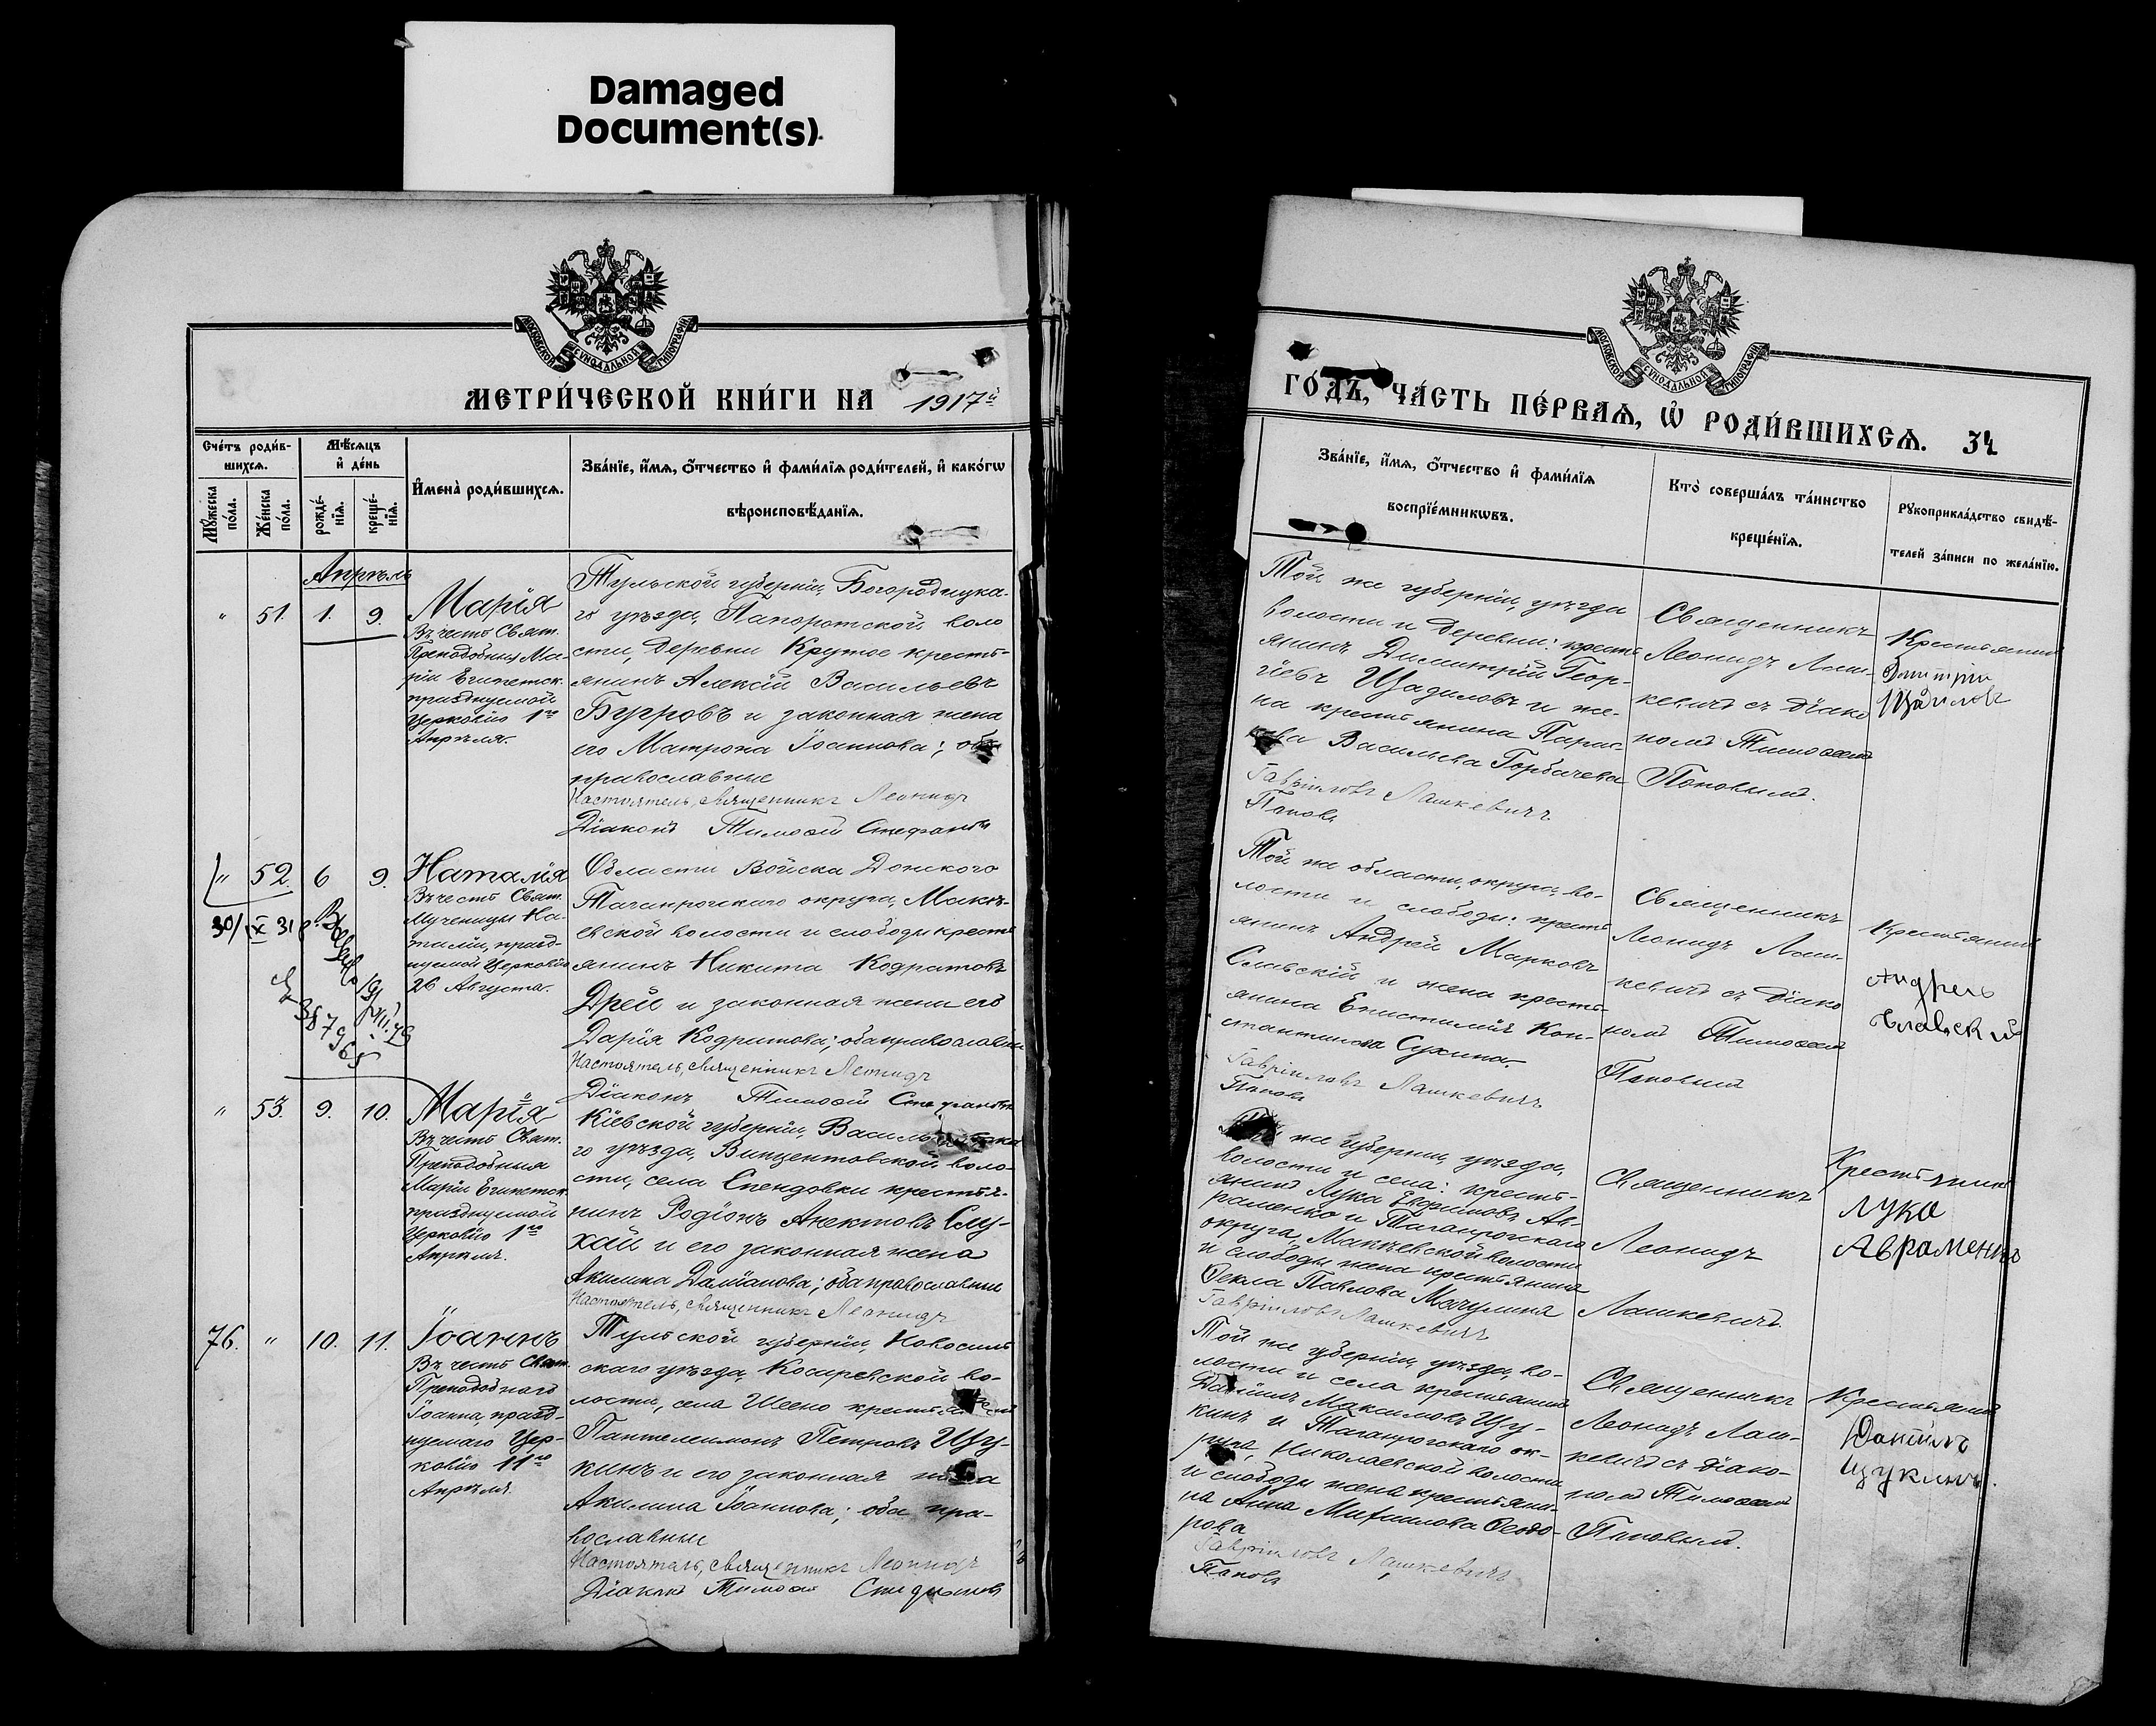 Damaged
Document(s)
МОСКОВСКОЙ СѴНОДАЛЬНОЙ ТИПОГРАФІИ
МЕТРИ́ЧЕСКОЙ КНИ́ГИ НА 1917й
Сче́тъ роди́в-
шихсѧ.
Мѣ́сѧцъ
и҆ де́нь
Мꙋ́жеска
по́ла.
Же́нска
по́ла.
рожде́-
нїѧ.
креще́-
нїѧ.
И҆мена̀ роди́вшихсѧ.
Зва́нїе, и҆́мѧ, ѻ҆́тчество и҆ фами́лїѧ роди́телей, и҆ како́гѡ
вѣроисповѣ́данїѧ.
Апрѣль
" 51. 1. 9.
Марія
Въ честь Свят.
Преподобныя Ма-
ріи Египетск.
празднуемой
Церковію 1го
Апрѣля.
Тульской губерніи, Богородицка-
го уѣзда, Папоротской воло
сти, деревни Крутое кресть-
янинъ Алексій Васильевъ
Бугровъ и законная жена
его Матрона Іоаннова; оба
православные
Настоятель, священникъ Леонидъ
Діаконъ Тимоѳей Стефановъ
" 52. 6 9.
Наталія
Въ честь Свят.
Мученицы На-
таліи, празд-
нуемой Церковію
26 Августа.
30/IX 31 г.
387965
Области Войска Донского
Таганрогскаго округа, Макѣ-
евской волости и слободы кресть
янинъ Никита Кодратовъ
Дрей и законная жена его
Дарія Кодратова; оба православны
Настоятель, священникъ Леонидъ
Діаконъ Тимоѳей Стефановъ
" 53. 9. 10.
Марія
Въ честь Свят.
Преподобныя
Маріи Египетск.
празднуемой
Церковію 1го
Апрѣля.
Кіевской губерніи, Василь
го уѣзда, Винцентовской воло-
сти, села Спендовки крестья-
нинъ Родіонъ Анектовъ Слу-
хай и его законная жена
Акилина Даміанова; оба православные
Настоятель, священникъ Леонидъ
76. " 10. 11.
Іоаннъ
Въ честь Свят.
Преподобнаго
Іоанна, празд-
нуемаго Цер-
ковію 11го
Апрѣля.
Тульской губерніи, Новосиль
скаго уѣзда, Косаревской во-
лости, села Шеено крестьянинъ
Пантелеимонъ Петровъ Щу-
кинъ и его законная жена
Акилина Іоаннова; оба пра-
вославные
Настоятель, священникъ Леонидъ
Діаконъ Тимоѳей Стефановъ
МОСКОВСКОЙ СѴНОДАЛЬНОЙ ТИПОГРАФІИ
ГО́ДЪ, ЧА́СТЬ ПЕ́РВАѦ, Ѡ҆ РОДИ́ВШИХСѦ. 34
Зва́нїе, и҆́мѧ, ѻ҆́тчество и҆ фами́лїѧ
воспрїе́мникѡвъ.
Кто̀ соверша́лъ та́инство
креще́нїѧ.
Рꙋкоприкла́дство свидѣ́-
телей за́писи по жела́нїю.
Той же губерніи, уѣзда
волости и деревни: кресть
янинъ Димитрій Геор-
гіевъ Щадиловъ и же-
на крестьянина Парас-
кева Васильева Горбачева
Гавріиловъ Лашкевичъ
Поповъ
Священникъ
Леонидъ Лаш-
кевичъ съ діако
номъ Тимоѳеемъ
Поповымъ.
Крестьянинъ
Дмитрій
Щадиловъ
Той же области, округа, во-
лости и слободы: кресть
янинъ Андрей Марковъ
Славскій и жена кресть-
янина Епистимія Кон-
стантинова Сухина.
Гавріиловъ Лашкевичъ
Поповъ
Священникъ
Леонидъ Лаш-
кевичъ съ діако
номъ Тимоѳеемъ
Поповымъ
Крестьянинъ
Андрей
Славский
Той же губерніи, уѣзда,
волости и села: кресть-
янинъ Лука Евфимовъ Ав-
раменко и Таганрогскаго
округа, Макѣевской волости
и слободы жена крестьянина
Ѳекла Павлова Мачулина
Гавріиловъ Лашкевичъ
Священникъ
Леонидъ
Лашкевичъ.
Крестьянинъ
Лука
Авраменко
Той же губерніи, уѣзда, во-
лости и села крестьянинъ
Даніилъ Максимовъ Щу-
кинъ и Таганрогскаго ок-
руга, Николаевской волости
и слободы жена крестьяни-
на Анна Михаилова Ѳеодо-
рова
Гавріиловъ Лашкевичъ
Поповъ
Священникъ
Леонидъ Лаш-
кевичъ съ діако-
номъ Тимоѳеемъ
Поповымъ.
Крестьянинъ
Данiилъ
Щукинъ.